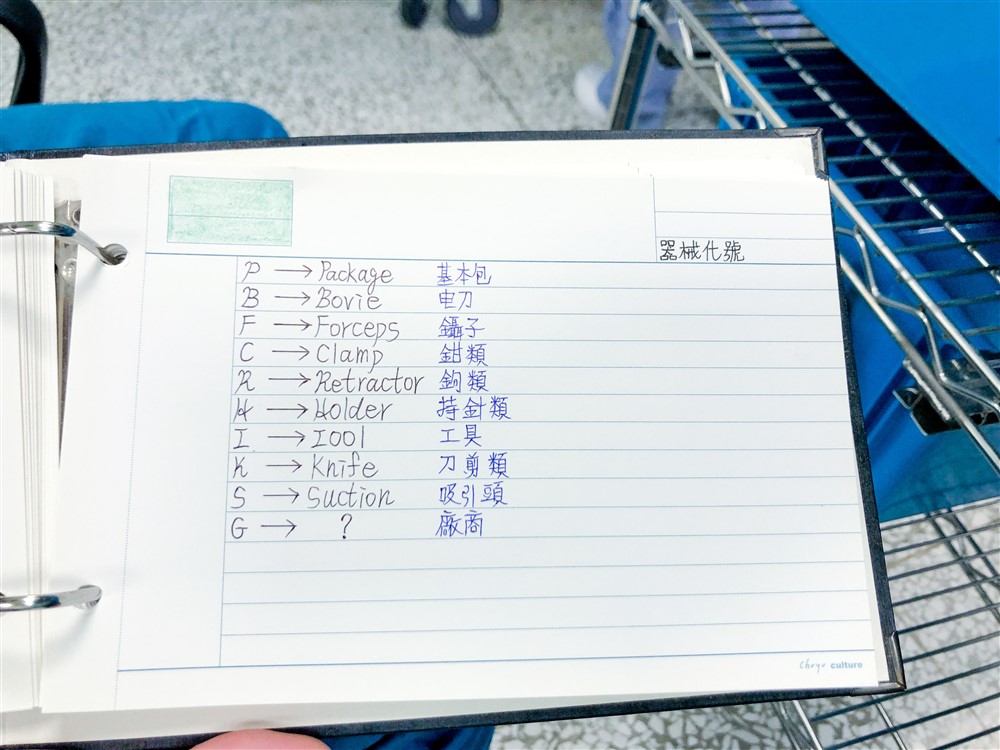 器械化號
P → Package 基本包
B → Bovie 电刀
F → Forceps 鑷子
C → Clamp 鉗類
R → Retractor 鉤類
H → Holder 持針類
I → IOOl 工具
K → Knife 刀剪類
S → Suction 吸引頭
G → ? 廠商
culture